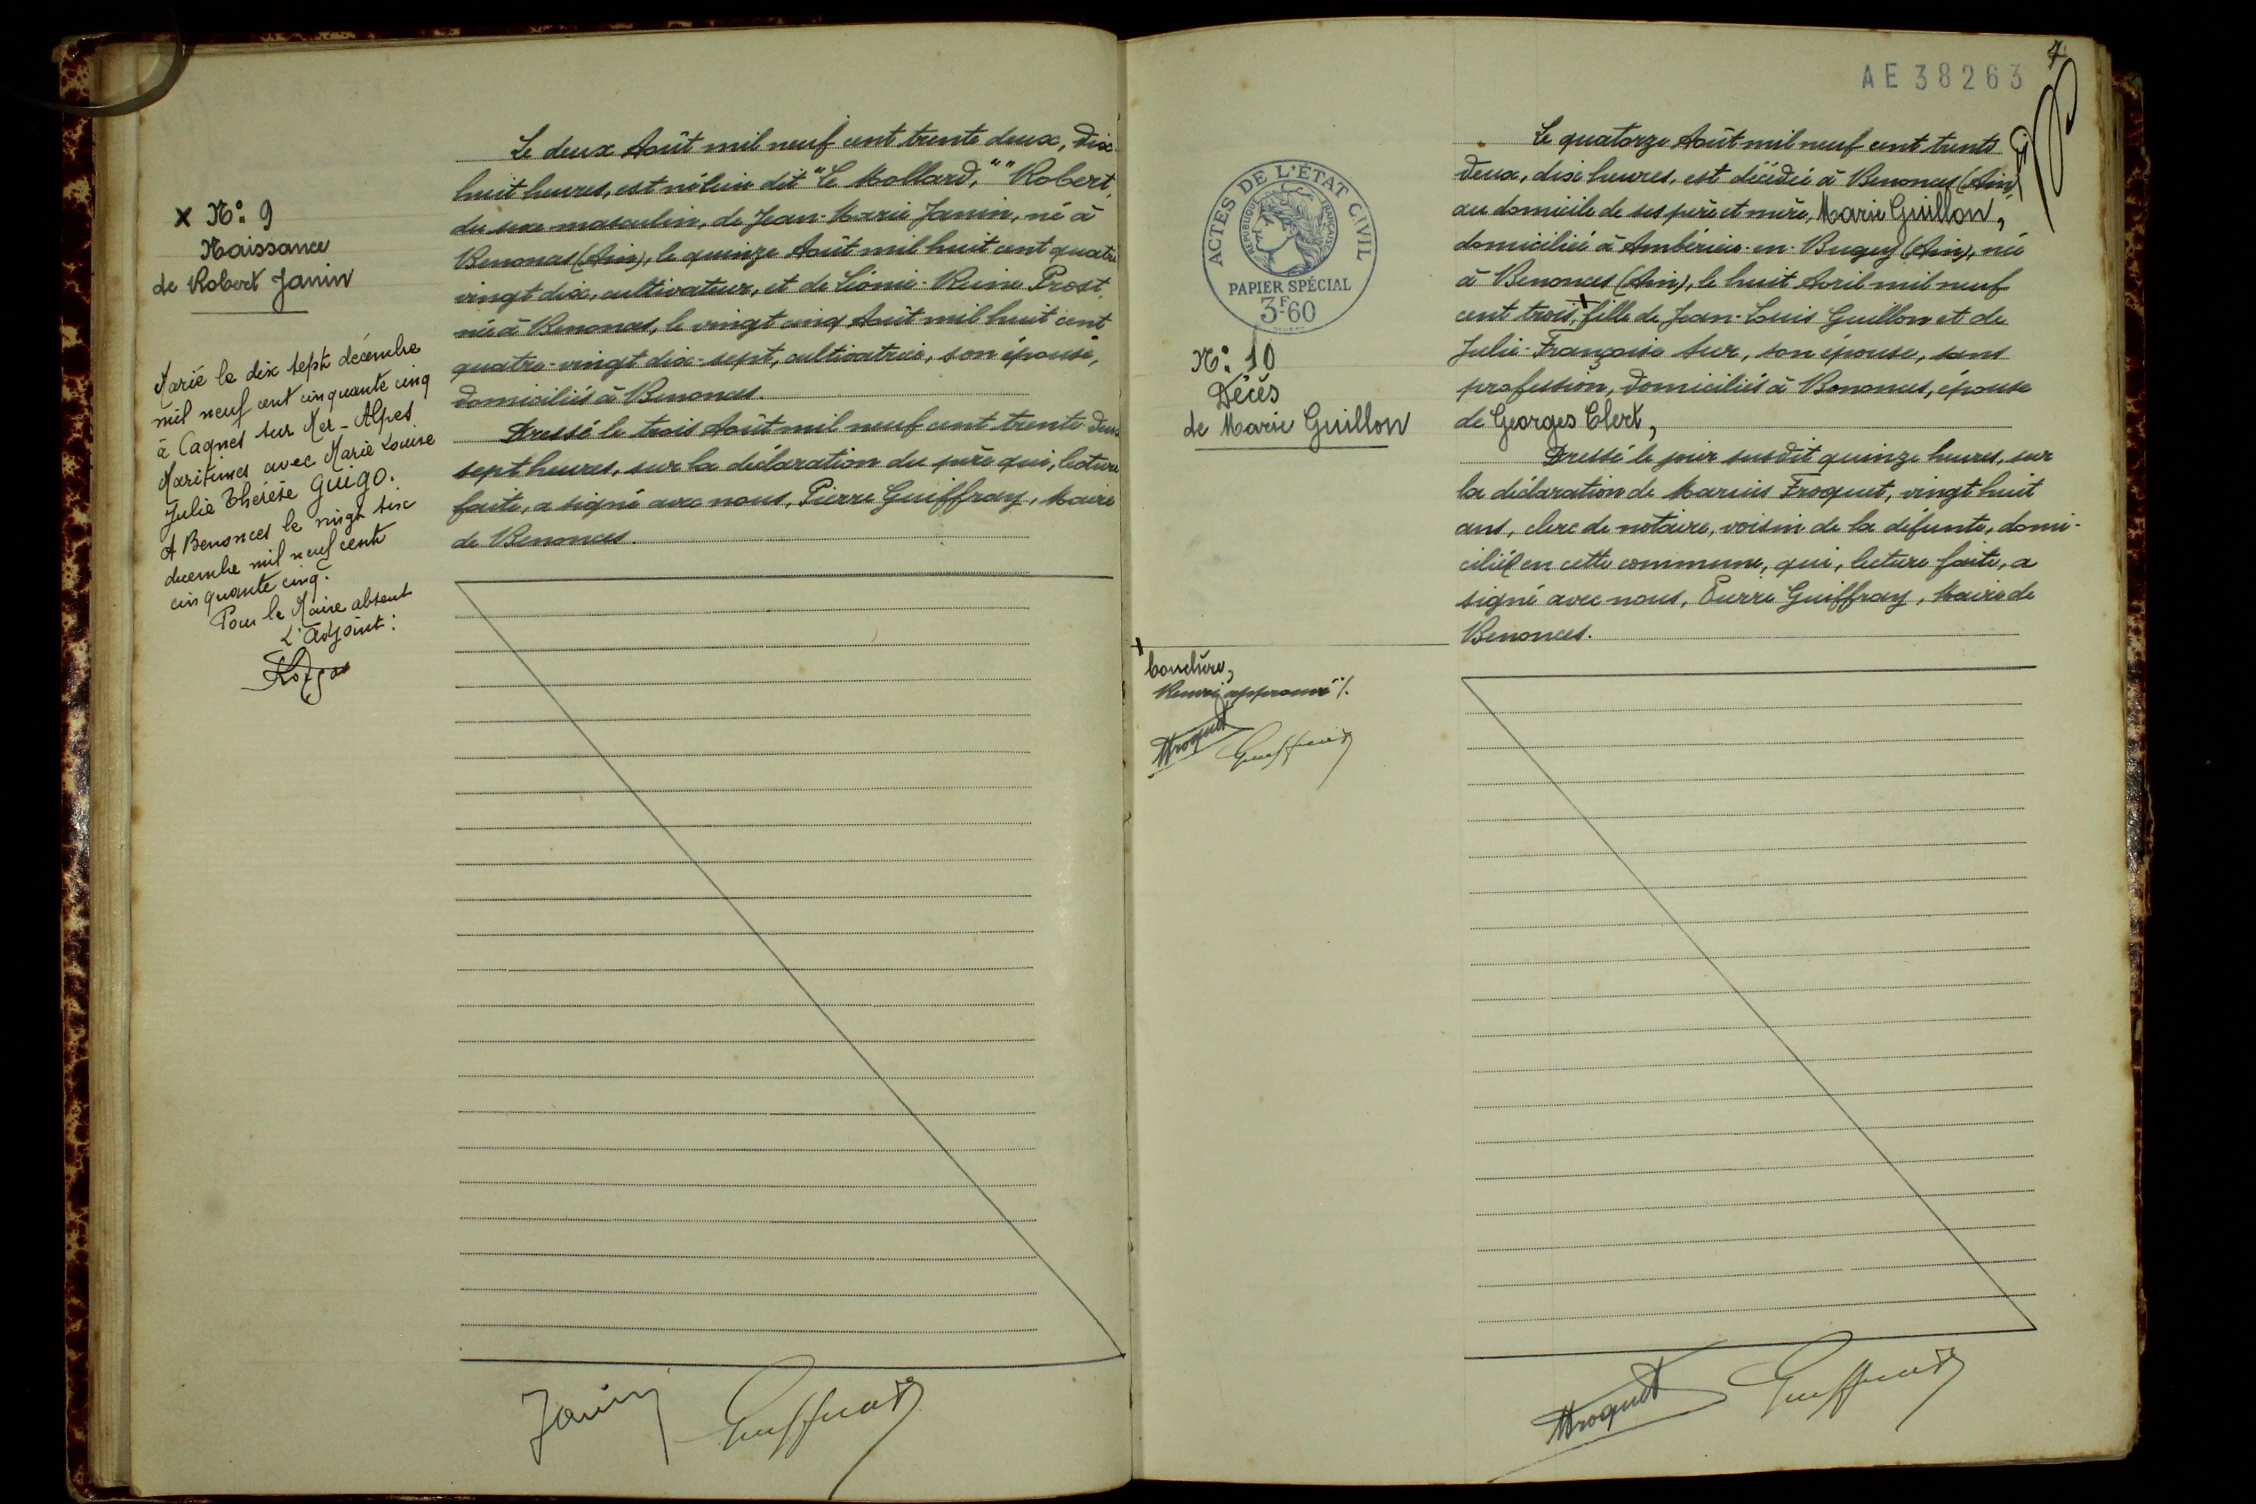 x N° 9
Naissance
de Robert Janin
Marié le dix sept décembre
mil neuf cent cinquante cinq
à Cagnes sur Mer - Alpes
Maritimes avec Marie Louise
Julie Thérèse GUIGO.
A Benonces le vingt six
décembre mil neuf cent
cinquante cinq.
Pour le Maire absent
L'adjoint :
Le deux Août mil neuf cent trente deux, dix-
huit heures, est né lieu dit "Le Mollard," "Robert,
du sexe masculin, de Jean-Marie Janin, né à
Benonces (Ain), le quinze Août mil huit cent quatre
vingt dix, cultivateur, et de Léonie-Reine Prost,
née à Benonces, le vingt cinq Août mil huit cent
quatre-vingt dix-sept, cultivatrice, son épouse,
domiciliés à Benonces.
Dressé le trois Août mil neuf cent trente deux
sept heures, sur la déclaration du père qui, lecture
faite, a signé avec nous, Pierre Guiffray, Maire
de Benonces.
Janin Guiffray
7
AE 38263
ACTES DE L'ÉTAT CIVIL
RÉPUBLIQUE FRANÇAISE
PAPIER SPÉCIAL
3F60
N° 10
Décès
de Marie Guillon
couturière,
Renvoi approuvé ./.
Froquet Guiffray
Le quatorze Août mil neuf cent trente
deux, dix heures, est décédée à Benonces (Ain)
au domicile de ses père et mère, Marie Guillon,
domiciliée à Ambérieu-en-Bugey (Ain), née
à Benonces (Ain), le huit Avril mil neuf
cent trois, fille de Jean-Louis Guillon et de
Julie-Françoise Sur, son épouse, sans
profession, domiciliés à Benonces, épouse
de Georges Clert,
Dressé le jour susdit quinze heures, sur
la déclaration de Marius Froquet, vingt huit
ans, clerc de notaire, voisin de la défunte, domi-
cilié en cette commune, qui, lecture faite, a
signé avec nous, Pierre Guiffray, Maire de
Benonces.
Froquet Guiffray